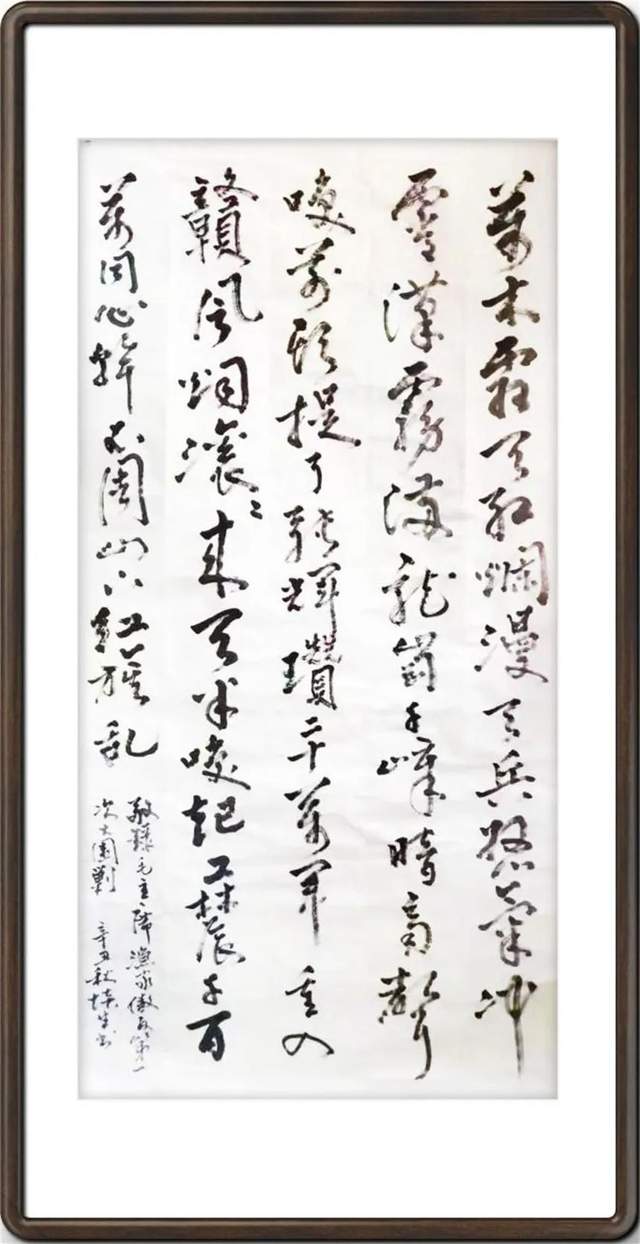 萬木霜天紅爛漫天兵怒氣冲
霄漢霧滿龍崗千嶂暗齊聲
喚前頭捉了張輝瓚二十萬軍重入
贛風烟滾〻來天半喚起工農千百
萬同心幹不周山下紅旗亂
敬錄毛主席漁家傲反第一
次大圍剿 辛丑秋 生书